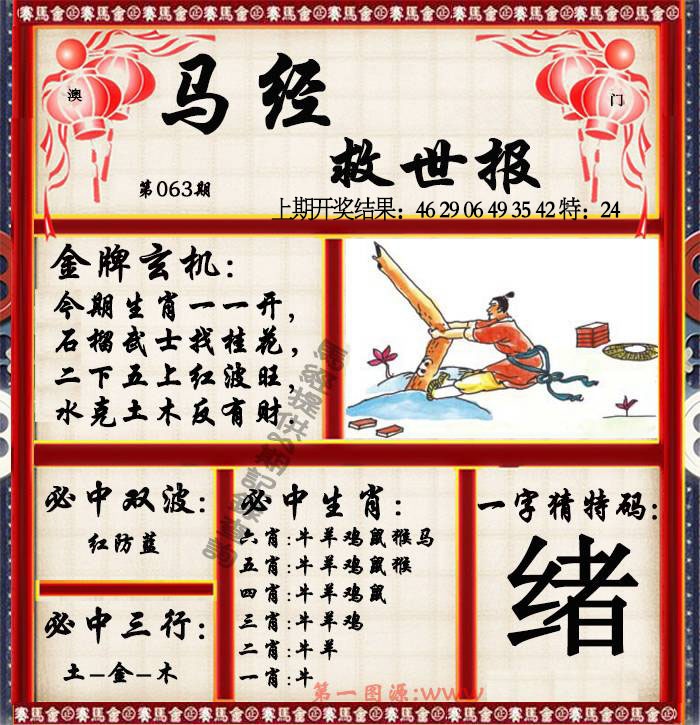 賽馬會正
澳
门
马经
救世报
第063期
上期开奖结果：46 29 06 49 35 42 特：24
金牌玄机：
今期生肖一一开，
石榴武士找桂花，
二下五上红波旺，
水克土木反有财.
必中双波：
红防蓝
必中三行：
土-金-木
必中生肖：
六肖:牛羊鸡鼠猴马
五肖:牛羊鸡鼠猴
四肖:牛羊鸡鼠
三肖:牛羊鸡
二肖:牛羊
一肖:牛
一字猜特码：
绪
第一图源:www